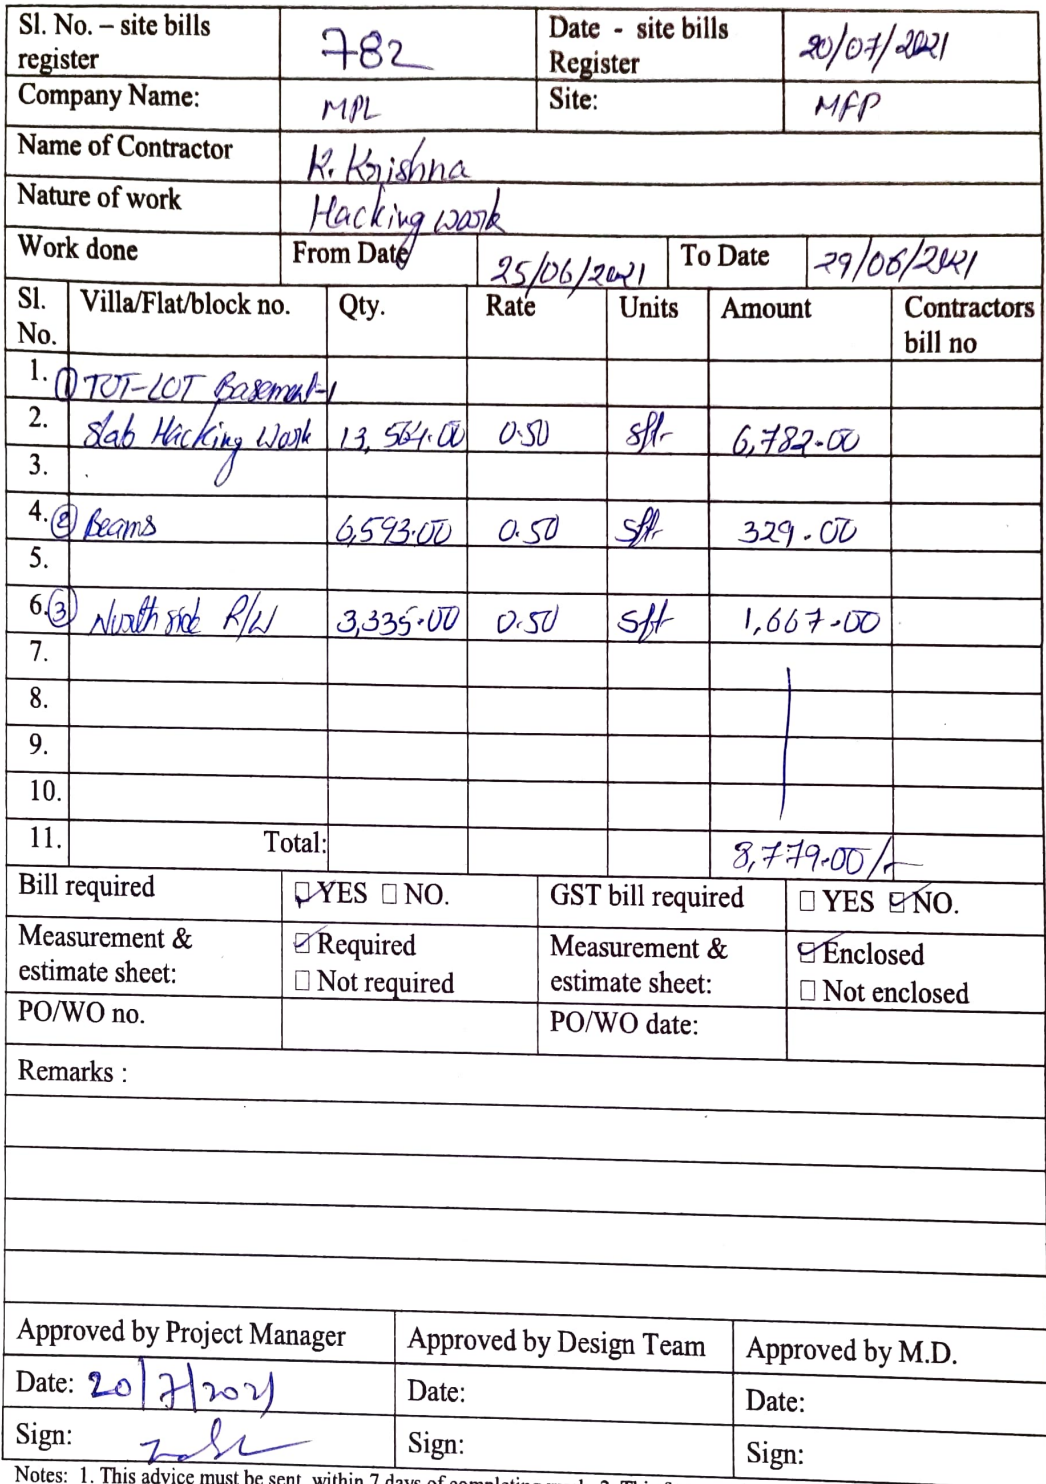 Sl. No. – site bills register 782 Date - site bills Register 20/07/2021
Company Name: MPL Site: MFP
Name of Contractor K. Krishna
Nature of work Hacking work
Work done From Date 25/06/2021 To Date 29/06/2021
Sl. No. Villa/Flat/block no. Qty. Rate Units Amount Contractors bill no
1. ① TOT-LOT Basement-1
2. Slab Hacking Work 13,564.00 0.50 sft 6,782.00
3.
4. ② Beams 6,593.00 0.50 sft 329.00
5.
6. ③ North side R/W 3,335.00 0.50 sft 1,667.00
7.
8.
9.
10.
11. Total: 8,779.00/-
Bill required ☑ YES ☐ NO. GST bill required ☐ YES ☑ NO.
Measurement & estimate sheet: ☑ Required ☐ Not required Measurement & estimate sheet: ☑ Enclosed ☐ Not enclosed
PO/WO no. PO/WO date:
Remarks :
Approved by Project Manager Approved by Design Team Approved by M.D.
Date: 20/7/2021 Date: Date:
Sign: Sign: Sign:
Notes: 1. This advice must be sent within 7 days of completing